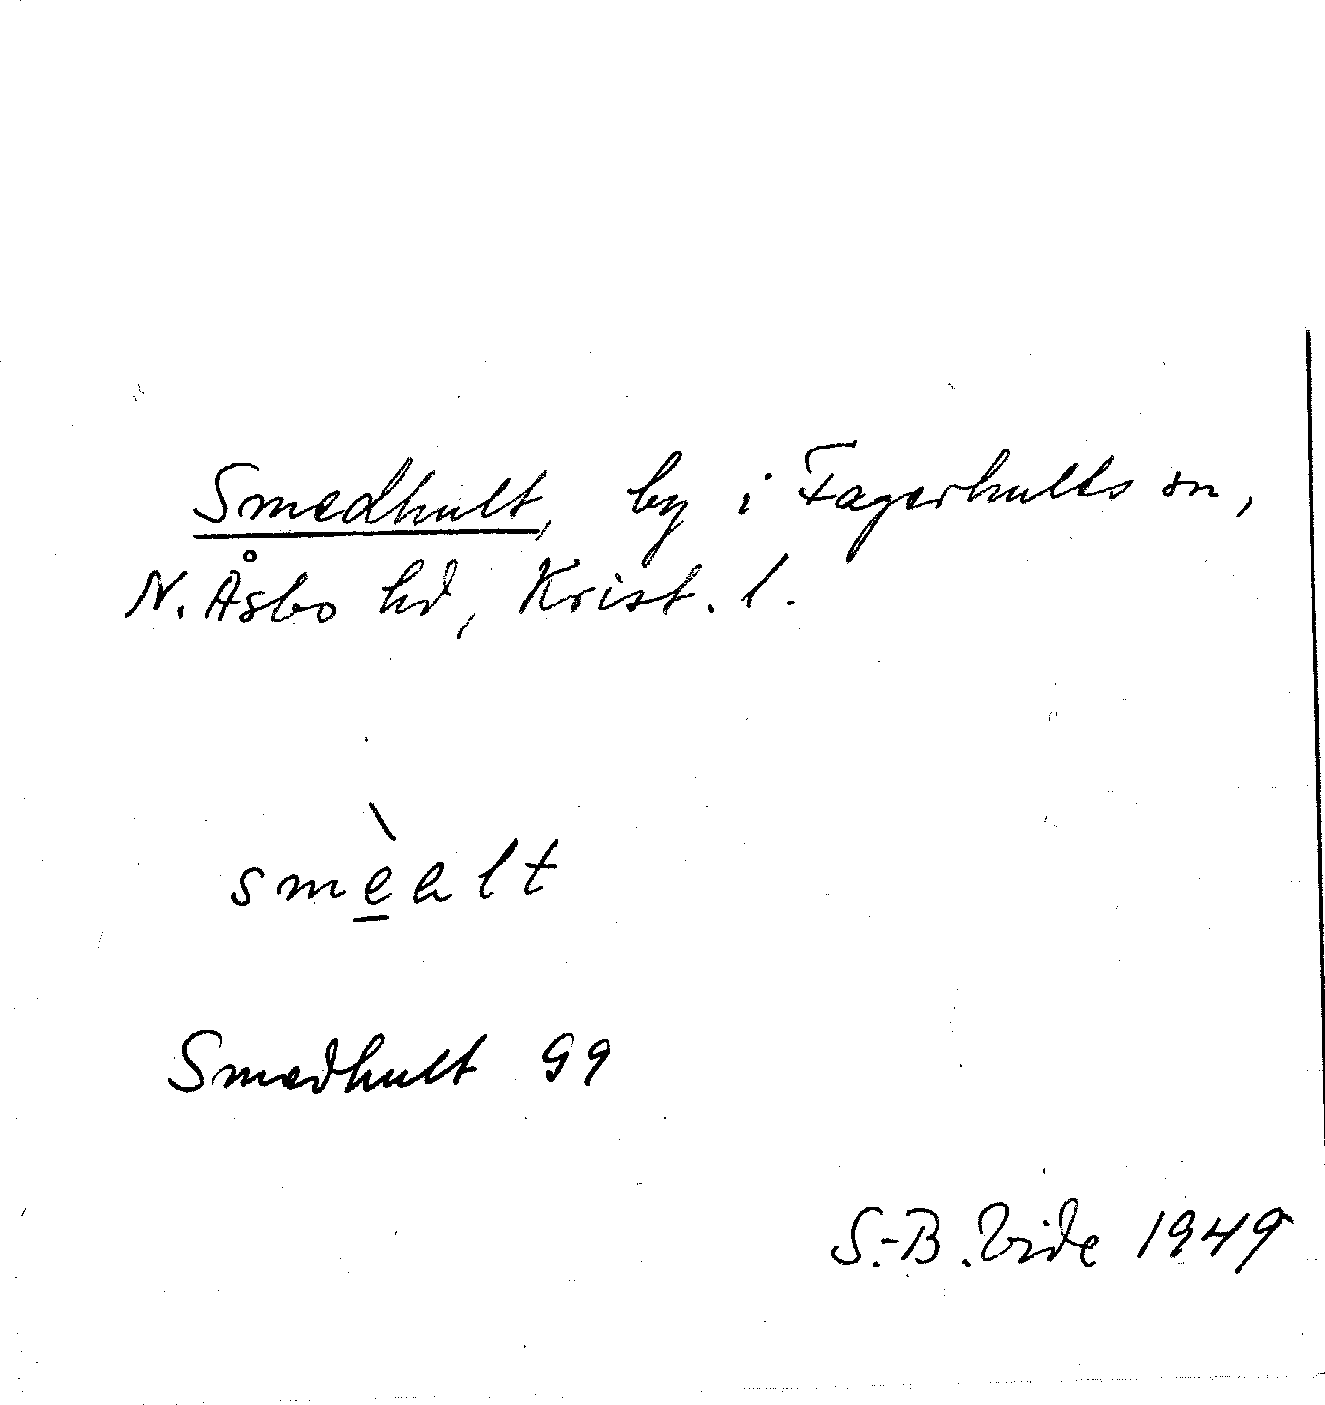 Smedhult, by i Fagerhults sn,
N. Åsbo hd, Krist. l.
smèalt
Smedhult G9
S.-B. Vide 1949